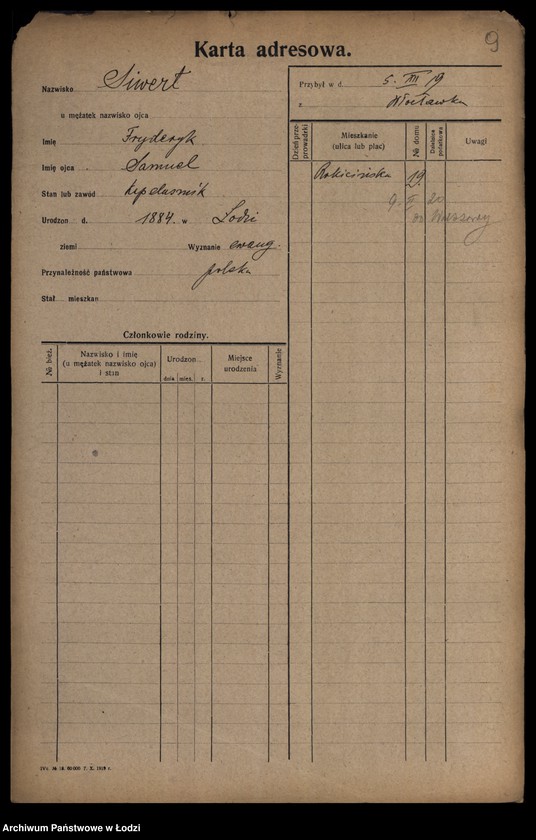 9
Karta adresowa.
Nazwisko Siwert
u mężatek nazwisko ojca
Imię Fryderyk
Imię ojca Samuel
Stan lub zawód kapelusznik
Urodzon d. 1884 w Łodzi
ziemi Wyznanie ewang.
Przynależność państwowa polska
Stał. mieszkan.
Przybył w d. 5. XII 19
z Włocławka
Dzień prze-prowadzki
Mieszkanie
(ulica lub plac)
№ domu
Dzielnica podatkowa
Uwagi
Rokicińska 19.
9. II 20
do Warszawy
Członkowie rodziny.
№ bież.
Nazwisko i imię
(u mężatek nazwisko ojca)
i stan
Urodzon.
dnia mies. r.
Miejsce
urodzenia
Wyznanie
Archiwum Państwowe w Łodzi